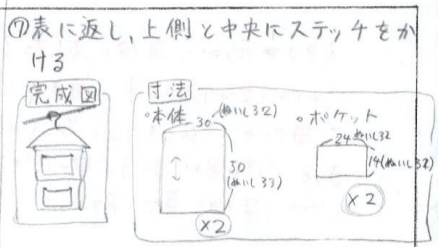 ⑦表に返し、上側と中央にステッチをか
ける
完成図
寸法
。本体
30
(ぬいしろ2)
50
(ぬいしろ3)
×2
。ポケット
24
ぬいしろ2
14(ぬいしろ2)
×2